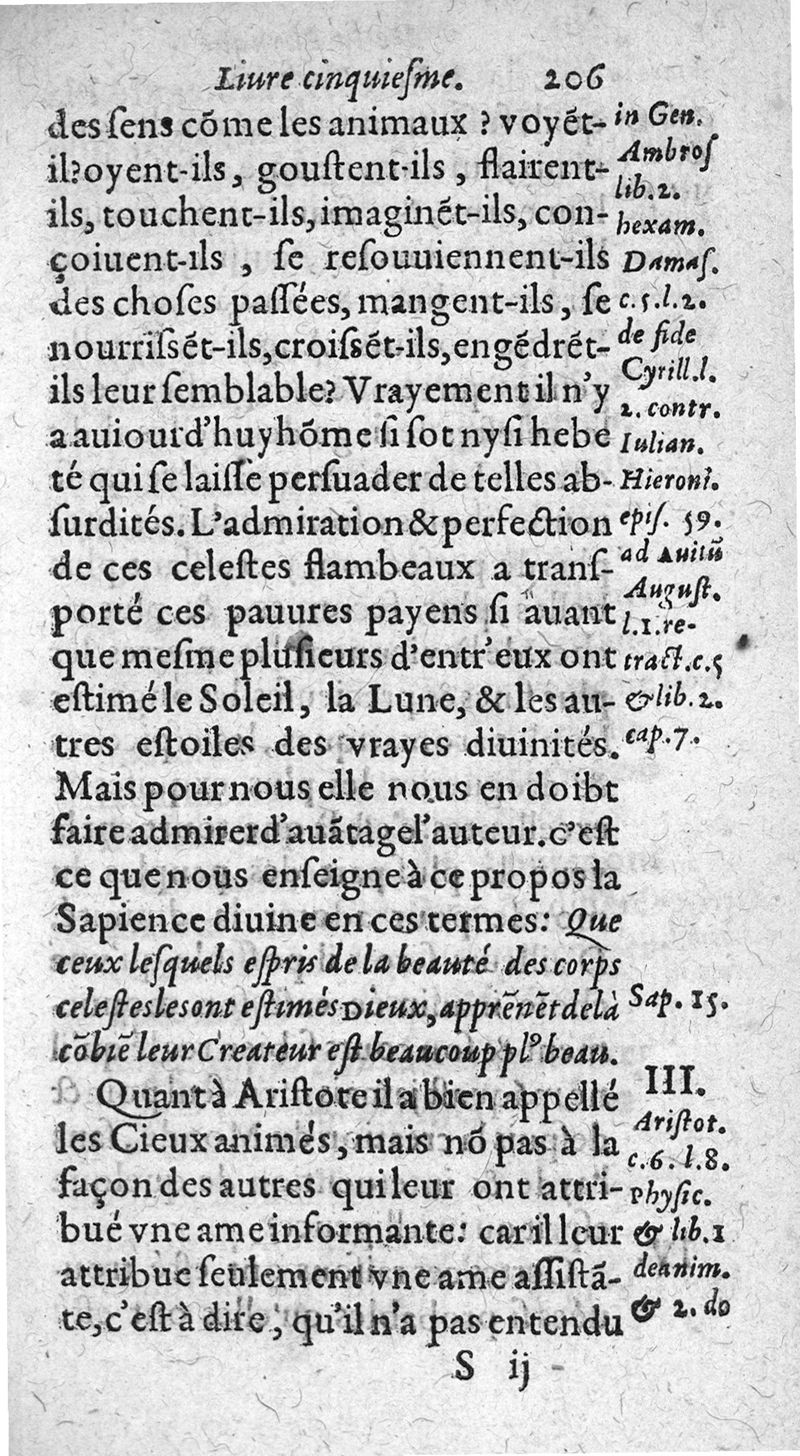 Liure cinquieſme. 206
des ſens cõme les animaux ? voyẽt-
il? oyent-ils, gouſtent-ils, flairent-
ils, touchent-ils, imaginẽt-ils, con-
çoiuent-ils , ſe reſouuiennent-ils
des choſes paſſées, mangent-ils, ſe
nourriſsẽt-ils, croiſsẽt-ils, engẽdrẽt-
ils leur ſemblable? Vrayement il n'y
a auiourd'huy hõme ſi ſot ny ſi hebe
té qui ſe laiſſe perſuader de telles ab-
ſurdités. L'admiration & perfection
de ces celeſtes flambeaux a tranſ-
porté ces pauures payens ſi auant
que meſme pluſieurs d'entr'eux ont
eſtimé le Soleil, la Lune, & les au-
tres eſtoiles des vrayes diuinités.
Mais pour nous elle nous en doibt
faire admirer d'auãtage l'auteur. c'eſt
ce que nous enſeigne à ce propos la
Sapience diuine en ces termes: Que
ceux leſquels eſpris de la beauté des corps
celeſtes les ont eſtimés Dieux, apprẽnẽt de là
cõbiẽ leur Createur eſt beaucoup plꝰ beau.
Quant à Ariſtote il a bien appellé
les Cieux animés, mais nõ pas à la
façon des autres qui leur ont attri-
bué vne ame informante: car il leur
attribue ſeulement vne ame aſſiſtã-
te, c'eſt à dire, qu'il n'a pas entendu
S ij
in Gen.
Ambroſ
lib. 2.
hexam.
Damaſ.
c. 5. l. 2.
de fide
Cyrill. l.
2. contr.
Iulian.
Hieroni.
epiſ. 59.
ad Auitũ
Auguſt.
l. 1. re-
tract. c. 5
& lib. 2.
cap. 7.
Sap. 15.
III.
Ariſtot.
c. 6. l. 8.
phyſic.
& lib. 1
de anim.
& 2. do